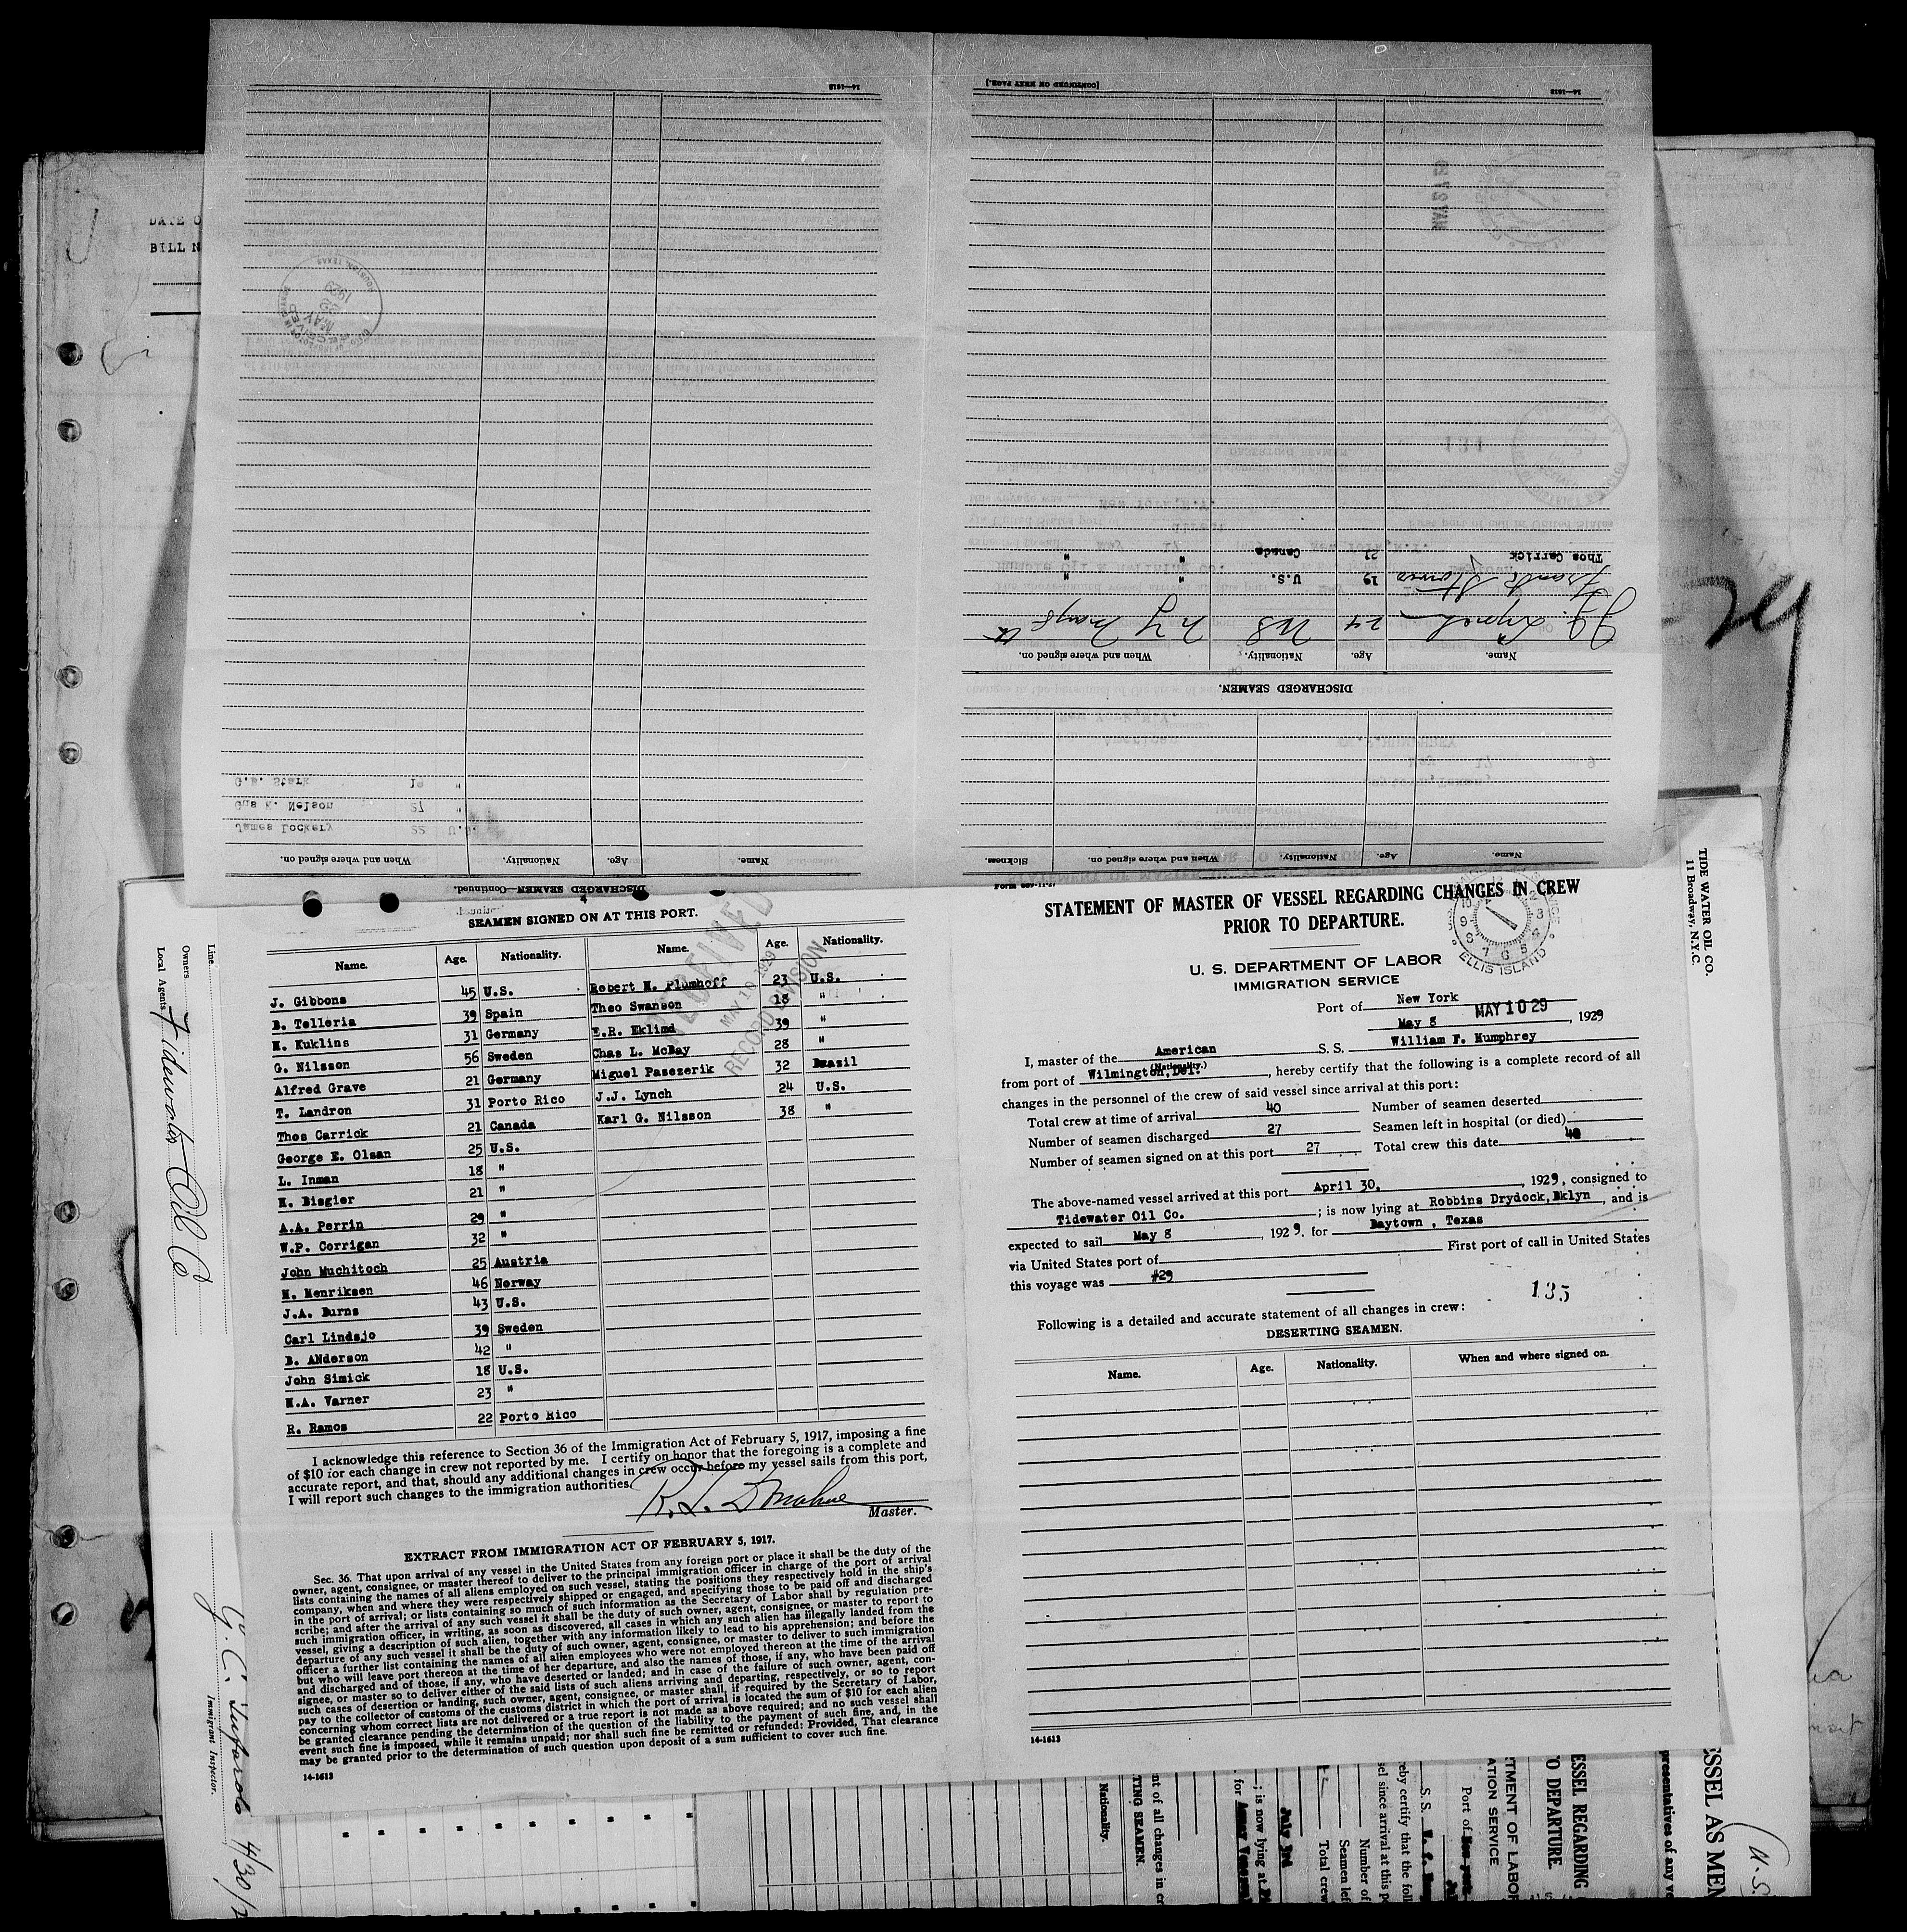 DATE O
BILL N
14—1613
[CONTINUED ON NEXT PAGE.]
14—1613
RECEIVED
MAY
1929
Thos Carrick 21 Canada " "
Frank Morris 19 U.S. " "
J J Lynch 24 US NY May 8
Name. Age. Nationality. When and where signed on.
DISCHARGED SEAMEN.
James Lockery 22 U.S.
Gus K. Nelson 27 "
G.A. Stark 18 "
Name. Age. Nationality. When and where signed on.
DISCHARGED SEAMEN—Continued.
Name. Age. Nationality. When and where signed on. Sickness.
TIDE WATER OIL CO.
11 Broadway, N.Y.C.
4
SEAMEN SIGNED ON AT THIS PORT.
Name. Age. Nationality. Name. Age. Nationality.
J. Gibbons 45 U.S. Robert H. Plumhoff 23 U.S.
B. Telleria 39 Spain Theo Swanson 18 "
H. Kuklins 31 Germany E.R. Eklind 39 "
G. Nilsson 56 Sweden Chas L. McBay 28 "
Alfred Grave 21 Germany Miguel Pasezerik 32 Brazil
T. Landron 31 Porto Rico J.J. Lynch 24 U.S.
Thos Carrick 21 Canada Karl G. Nilsson 38 "
George E. Olsan 25 U.S.
L. Inman 18 "
H. Bisgier 21 "
A.A. Perrin 29 "
W.P. Corrigan 32 "
John Muchitsch 25 Austria
H. Henriksen 46 Norway
J.A. Burns 43 U.S.
Carl Lindsjo 39 Sweden
B. ANderson 42 "
John Simick 18 U.S.
H.A. Varner 23 "
R. Ramos 22 Porto Rico
RECEIVED
MAY 10 1929
RECORD DIVISION
I acknowledge this reference to Section 36 of the Immigration Act of February 5, 1917, imposing a fine
of $10 for each change in crew not reported by me. I certify on honor that the foregoing is a complete and
accurate report, and that, should any additional changes in crew occur before my vessel sails from this port,
I will report such changes to the immigration authorities.
R. L. Donahue
Master.
EXTRACT FROM IMMIGRATION ACT OF FEBRUARY 5, 1917.
Sec. 36. That upon arrival of any vessel in the United States from any foreign port or place it shall be the duty of the
owner, agent, consignee, or master thereof to deliver to the principal immigration officer in charge of the port of arrival
lists containing the names of all aliens employed on such vessel, stating the positions they respectively hold in the ship's
company, when and where they were respectively shipped or engaged, and specifying those to be paid off and discharged
in the port of arrival; or lists containing so much of such information as the Secretary of Labor shall by regulation pre-
scribe; and after the arrival of any such vessel it shall be the duty of such owner, agent, consignee, or master to report to
such immigration officer, in writing, as soon as discovered, all cases in which any such alien has illegally landed from the
vessel, giving a description of such alien, together with any information likely to lead to his apprehension; and before the
departure of any such vessel it shall be the duty of such owner, agent, consignee, or master to deliver to such immigration
officer a further list containing the names of all alien employees who were not employed thereon at the time of the arrival
but who will leave port thereon at the time of her departure, and also the names of those, if any, who have been paid off
and discharged and of those, if any, who have deserted or landed; and in case of the failure of such owner, agent, con-
signee, or master so to deliver either of the said lists of such aliens arriving and departing, respectively, or so to report
such cases of desertion or landing, such owner, agent, consignee, or master shall, if required by the Secretary of Labor,
pay to the collector of customs of the customs district in which the port of arrival is located the sum of $10 for each alien
concerning whom correct lists are not delivered or a true report is not made as above required; and no such vessel shall
be granted clearance pending the determination of the question of the liability to the payment of such fine, and, in the
event such fine is imposed, while it remains unpaid; nor shall such fine be remitted or refunded: Provided, That clearance
may be granted prior to the determination of such question upon deposit of a sum sufficient to cover such fine.
14-1613
STATEMENT OF MASTER OF VESSEL REGARDING CHANGES IN CREW
PRIOR TO DEPARTURE.
ELLIS ISLAND
U. S. DEPARTMENT OF LABOR
IMMIGRATION SERVICE
Port of New York
MAY 10 29
May 8, 1929
I, master of the American S. S. William F. Humphrey
(Nationality.)
from port of Wilmington, Del., hereby certify that the following is a complete record of all
changes in the personnel of the crew of said vessel since arrival at this port:
Total crew at time of arrival 40 Number of seamen deserted
Number of seamen discharged 27 Seamen left in hospital (or died)
Number of seamen signed on at this port 27 Total crew this date 40
The above-named vessel arrived at this port April 30, 1929, consigned to
Tidewater Oil Co. ; is now lying at Robbins Drydock, Bklyn, and is
expected to sail May 8, 1929, for Baytown , Texas
via United States port of First port of call in United States
this voyage was #29
135
Following is a detailed and accurate statement of all changes in crew:
DESERTING SEAMEN.
Name. Age. Nationality. When and where signed on.
14-1613
Line
Owners
Local Agents Tidewater Oil Co
Immigrant Inspector.
4/30/2
Nationality.
TING SEAMEN.
nt of all changes in cr
; is now lying at
for
July 3rd
Total crew
Seamen lef
Number of
sel since arrival at this po
eby certify that the foll
S. S.
Port of New York
ATION SERVICE
TMENT OF LABOR
O DEPARTURE.
ESSEL REGARDING
presentatives of any ve
SSEL AS MEN
U.S.